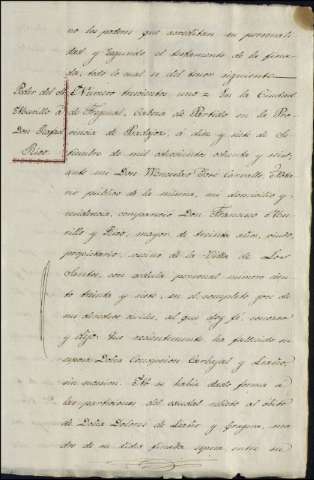 no los poderes que acreditan su personali-
dad y segundo el testamento de la fina-
da, todo lo cual es del tenor siguiente
Poder del Sr.
Murillo á
Don Rafael
Rico
Numero trescientos uno = En la Ciudad
de Fregenal, Cabeza de Partido en la Pro-
vincia de Badajoz, á diez y siete de Se-
tiembre de mil ochocientos ochenta y seis,
ante mi Don Wenceslao Carvallo Nota-
rio publico de la misma, mi domicilio y
residencia, comparece Don Francisco Mu-
rillo y Rico, mayor de treinta años, viudo,
propietario, vecino de la Villa de Los
Santos, con cedula personal numero cien-
to treinta y siete, en el completo goce de
sus derechos civiles, al que doy fe, conozco
y dijo: Que recientemente ha fallecido su
esposa Doña Concepcion Carbajal y Liaño,
sin sucesion. Ni se habia dado forma á
las particiones del caudal relicto al obito
de Doña Dolores de Liaño y
dre de su dicha finada esposa, entre su